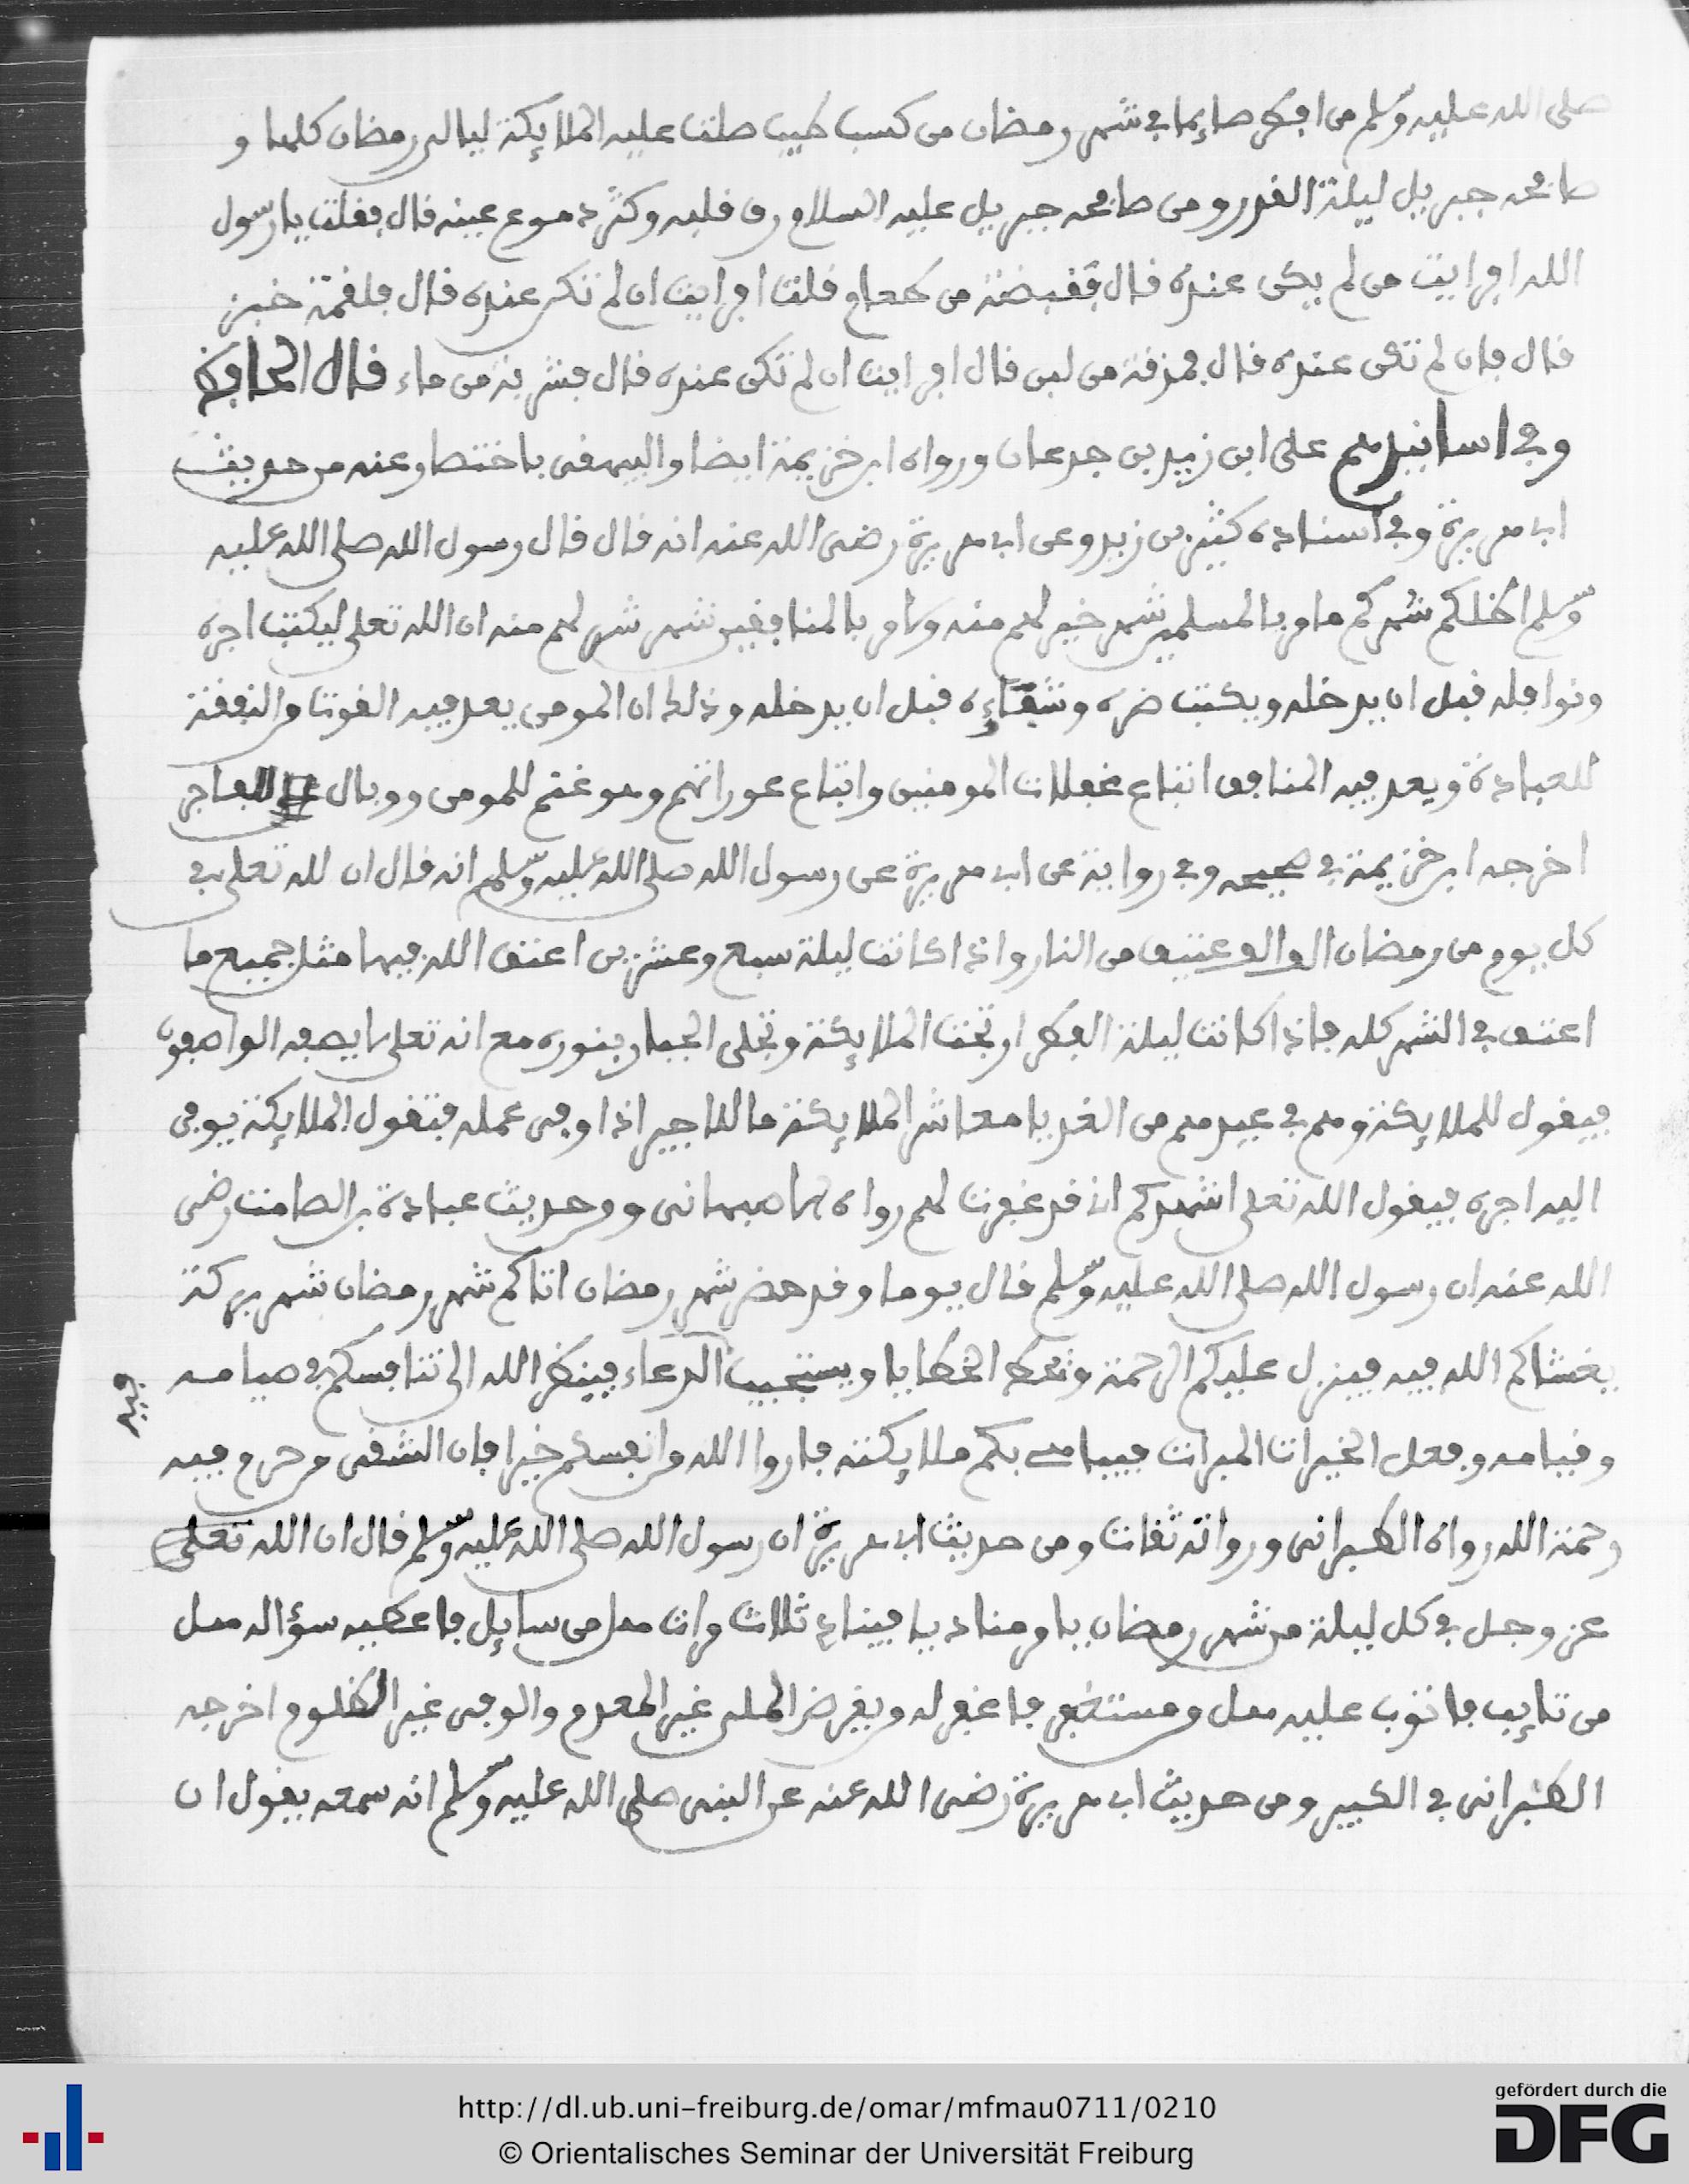 صلى الله عليه وسلم من افطر صايما في شهر رمضان من كسب طيب صلت عليه الملايكة ليالي رمضان كلها و
صافحه جبريل ليلة القدر ومن صافحه جبريل عليه السلام رق قلبه وكثر دموع عينه قال فقلت يا رسول
الله افرايت من لم يكن عنده قال فقبضة من طعام قلت افرايت ان لم تكن عنده قال فلقمة خبز
قال فان لم تكن عنده قال فمذقة من لبن قال افرايت ان لم تكن عنده قال فشربة من ماء قال الحافظ
وفي اسانيدهم على ابن زيد بن جدعان ورواه ابن خزيمة ايضا والبيهقي باختصار عنه من حديث
ابي هريرة وفي اسناده كثير بن زيد وعن ابي هريرة رضي الله عنه انه قال قال رسول الله صلى الله عليه
وسلم اظلكم شهركم ما مر بالمسلمين شهر خير لهم منه ولا مر بالمنافقين شهر شر لهم منه ان الله تعلى ليكتب اجره
ونوافله قبل ان يدخله ويكتب ضره وشقاءه قبل ان يدخله وذلك ان المومن يعد فيه القوت والنفقة
للعبادة ويعد فيه المنافق اتباع غفلات المومنين واتباع عوراتهم وهو غنم للمومن ووبال للفاجر
اخرجه ابن خزيمة في صحيحه وفي رواية عن ابي هريرة عن رسول الله صلى الله عليه وسلم انه قال ان لله تعلى في
كل يوم من رمضان الف الف عتيق من النار واذا كانت ليلة سبع وعشرين اعتق الله فيها مثل جميع ما
اعتق في الشهر كله فاذا كانت ليلة الفطر ارتجت الملايكة وتجلى الجبار بنوره مع انه تعلى لا يصفه الواصفون
فيقول للملايكة وهم في عيدهم من الغد يا معاشر الملايكة ما للاجير اذا وفى عمله فتقول الملايكة يوفى
اليه اجره فيقول الله تعلى اشهدكم اني قد غفرت لهم رواه الاصبهاني ومن حديث عبادة بن الصامت رضي
الله عنه ان رسول الله صلى الله عليه وسلم قال يوما وقد حضر شهر رمضان اتاكم شهر رمضان شهر بركة
يغشاكم الله فيه فينزل عليكم الرحمة وتحط الخطايا ويستجيب الدعاء فينظر الله الى تنافسكم في صيامه
فيه
وقيامه وفعل الخيرات المبرات فيباهي بكم ملايكته فاروا الله من انفسكم خيرا فان الشقي من حرم فيه
رحمة الله رواه الطبراني ورواته ثقات ومن حديث ابي هريرة ان رسول الله صلى الله عليه وسلم قال ان الله تعلى
عز وجل في كل ليلة من شهر رمضان يامر مناديا فينادي ثلاث مرات هل من سايل فاعطيه سؤاله هل
من تايب فاتوب عليه هل من مستغفر فاغفر له ويقرض الملي غير المعدم والوفي غير الظلوم اخرجه
الطبراني في الكبير ومن حديث ابي هريرة رضي الله عنه عن النبي صلى الله عليه وسلم انه سمعه يقول ان
http://dl.ub.uni-freiburg.de/omar/mfmau0711/0210
© Orientalisches Seminar der Universität Freiburg
gefördert durch die
DFG